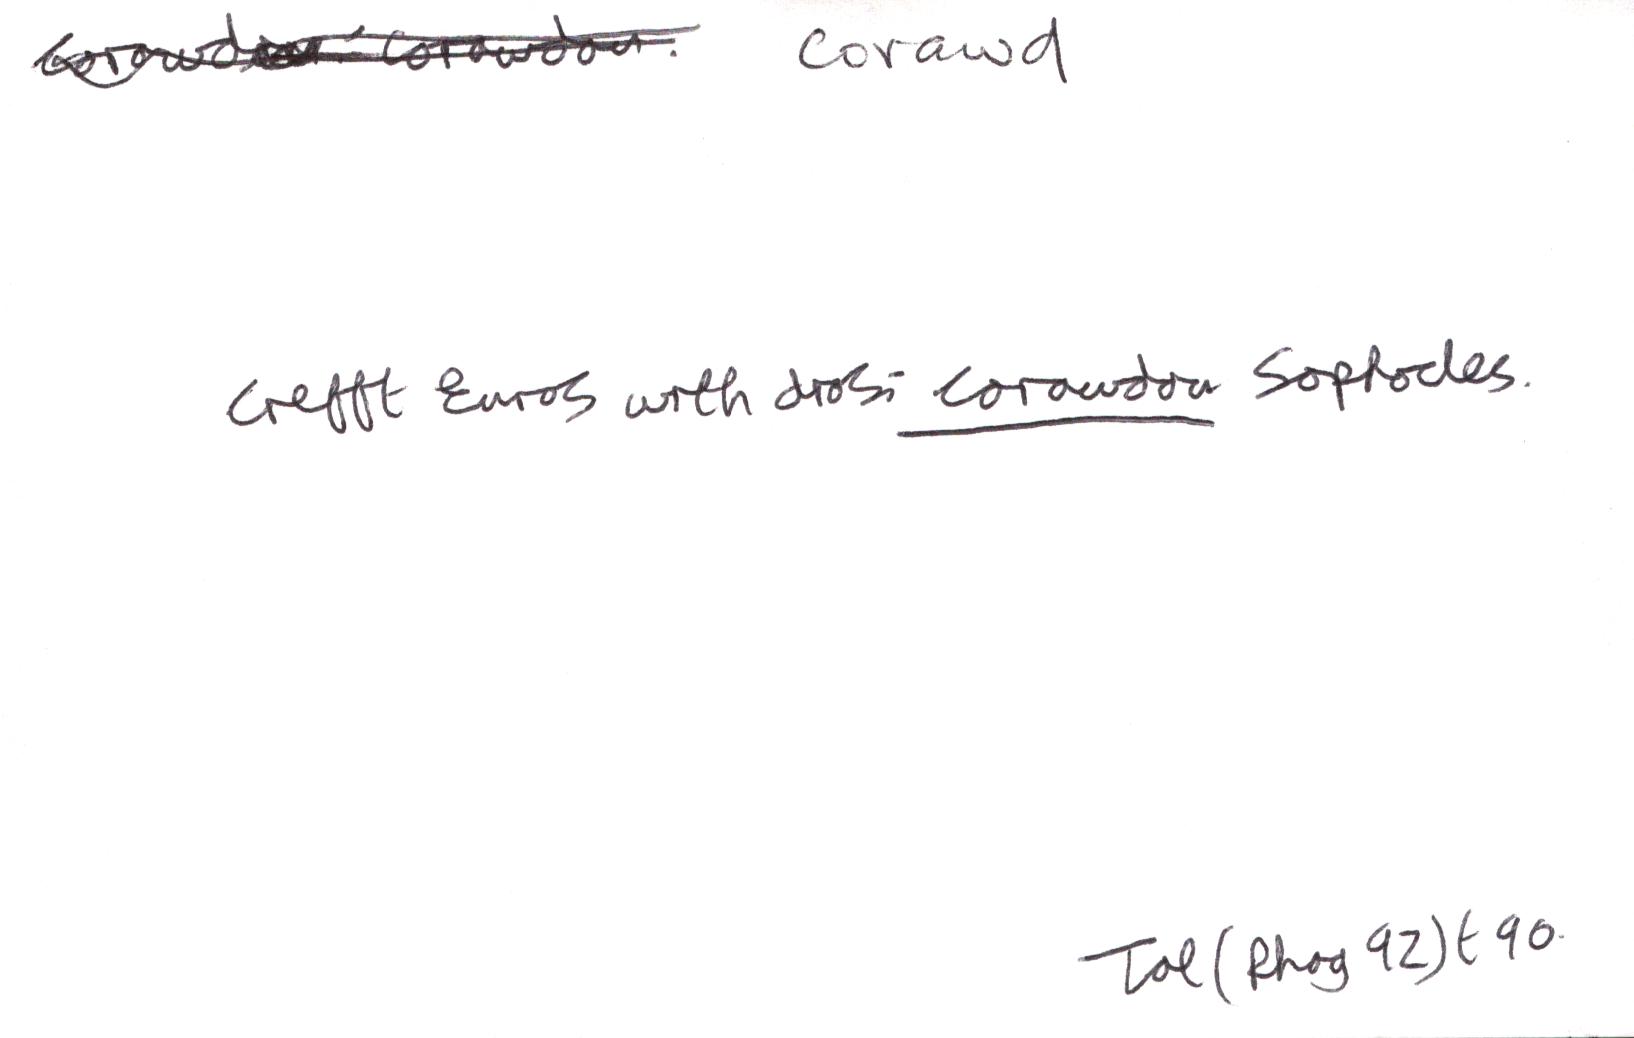 corawdau: corawdau. corawd
crefft Euros wrth drosi corawdau Sophocles.
Tal (Rhag 92) t 90.